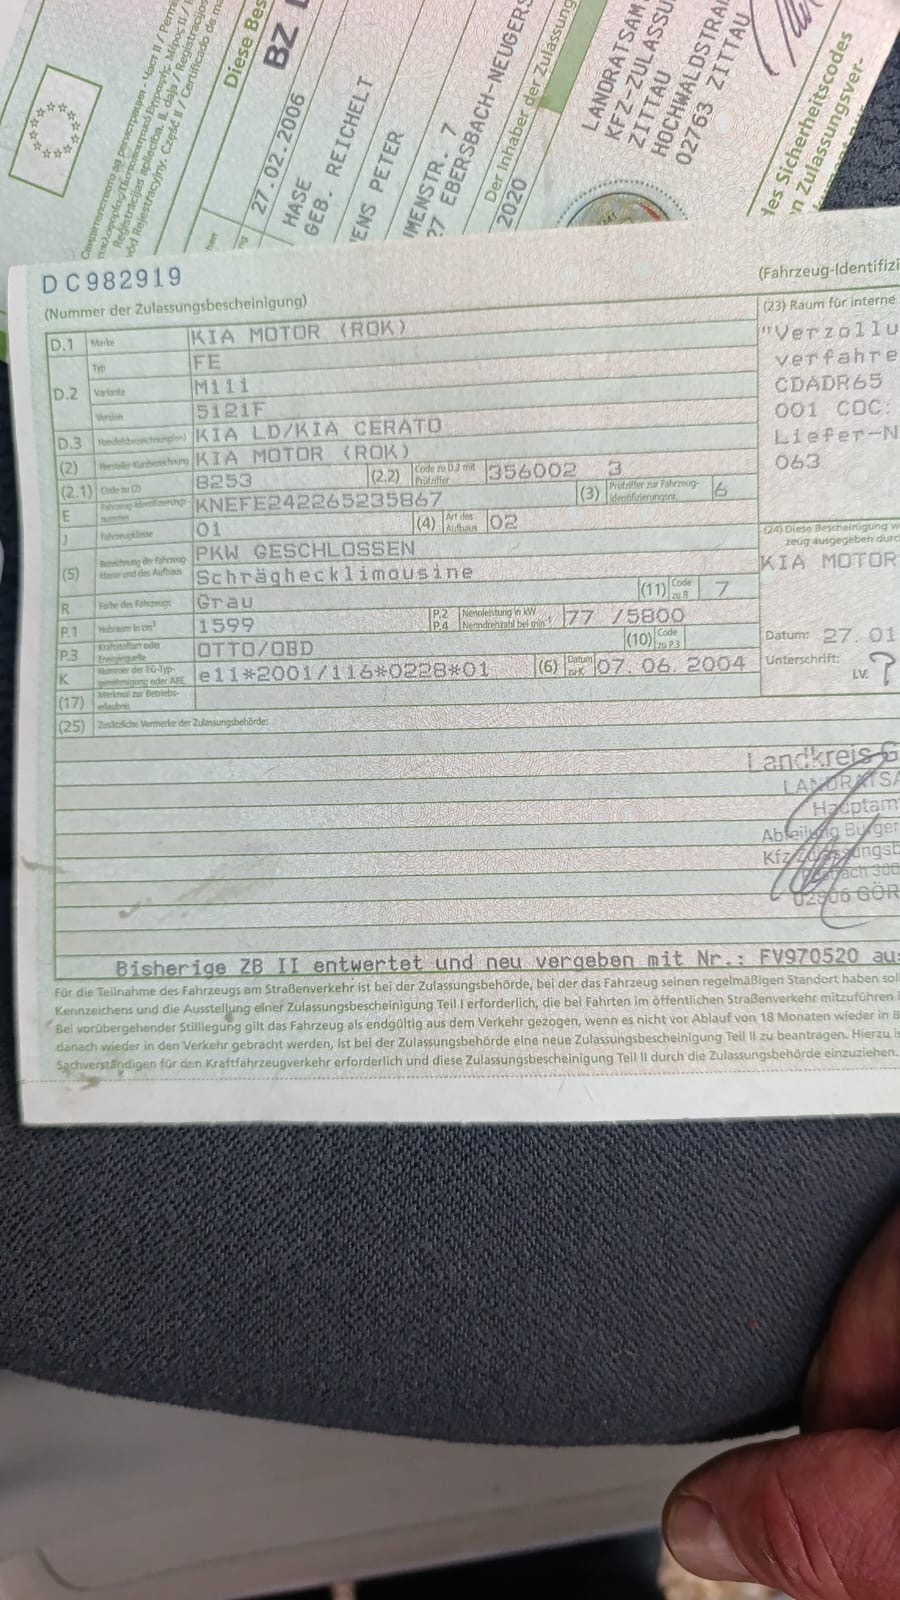 Diese Bes
BZ L
27.02.2006
HASE
GEB. REICHELT
ENS PETER
MENSTR. 7
27 EBERSBACH-NEUGERS
Der Inhaber der Zulassung
2020
LANDRATSAM
KFZ-ZULASSU
ZITTAU
HOCHWALDSTRA
02763 ZITTAU
des Sicherheitscodes
n Zulassungsver-
DC982919
(Fahrzeug-Identifizi
(Nummer der Zulassungsbescheinigung)
D.1 Marke KIA MOTOR (ROK)
Typ FE
D.2 Variante M111
Version 5121F
D.3 Handelsbezeichnung(en) KIA LD/KIA CERATO
(2) Hersteller-Kurzbezeichnung KIA MOTOR (ROK)
(2.1) Code zu (2) 8253 (2.2) Code zu D.2 mit Prüfziffer 356002 3
E Fahrzeug-Identifizierungs-nummer KNEFE242265235867 (3) Prüfziffer zur Fahrzeug-Identifizierungsnr. 6
J Fahrzeugklasse 01 (4) Art des Aufbaus 02
(5) Bezeichnung der Fahrzeug-klasse und des Aufbaus PKW GESCHLOSSEN
Schräghecklimousine
R Farbe des Fahrzeugs Grau (11) Code zu R 7
P.1 Hubraum in cm³ 1599 P.2 P.4 Nennleistung in kW Nenndrehzahl bei min⁻¹ 77 /5800
P.3 Kraftstoffart oder Energiequelle OTTO/OBD (10) Code zu P.3
K Nummer der EG-Typ-genehmigung oder ABE e11*2001/116*0228*01 (6) Datum zu K 07.06.2004
(17) Merkmal zur Betriebs-erlaubnis
(25) Zusätzliche Vermerke der Zulassungsbehörde:
(23) Raum für interne
"Verzollu
verfahre
CDADR65
001 COC:
Liefer-N
063
(24) Diese Bescheinigung w
zeug ausgegeben durc
KIA MOTOR
Datum: 27.01
Unterschrift:
i.V.
Landkreis G
LANDRATSA
Hauptam
Abteilung Bürger
Kfz-Zulassungsb
02906 GÖR
Bisherige ZB II entwertet und neu vergeben mit Nr.: FV970520 aus
Für die Teilnahme des Fahrzeugs am Straßenverkehr ist bei der Zulassungsbehörde, bei der das Fahrzeug seinen regelmäßigen Standort haben soll
Kennzeichens und die Ausstellung einer Zulassungsbescheinigung Teil I erforderlich, die bei Fahrten im öffentlichen Straßenverkehr mitzuführen
Bei vorübergehender Stilllegung gilt das Fahrzeug als endgültig aus dem Verkehr gezogen, wenn es nicht vor Ablauf von 18 Monaten wieder in B
danach wieder in den Verkehr gebracht werden, ist bei der Zulassungsbehörde eine neue Zulassungsbescheinigung Teil II zu beantragen. Hierzu is
Sachverständigen für den Kraftfahrzeugverkehr erforderlich und diese Zulassungsbescheinigung Teil II durch die Zulassungsbehörde einzuziehen.